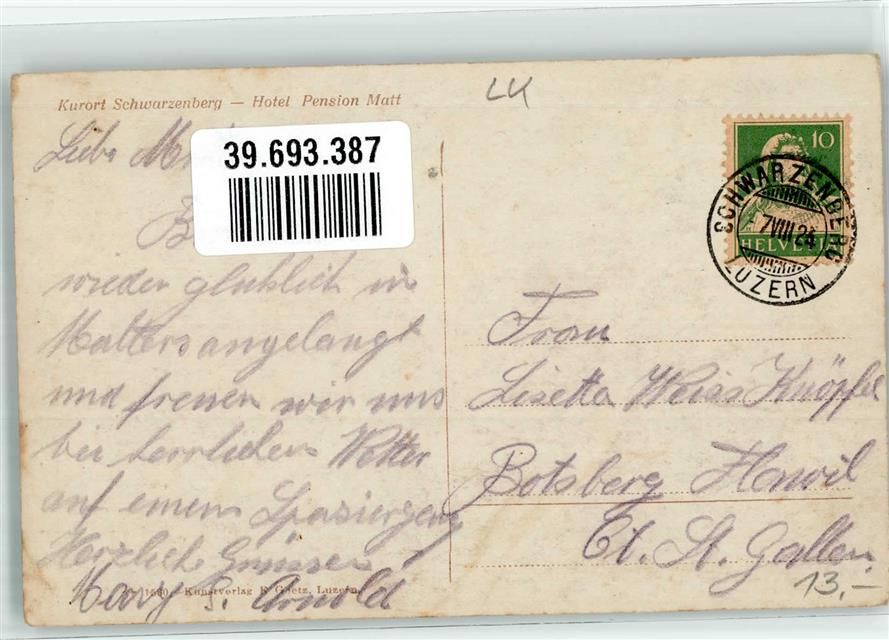 Kurort Schwarzenberg — Hotel Pension Matt
LU
39.693.387
10
HELVETIA
SCHWARZENBERG
7 VIII 24
LUZERN
Liebe
wieder glücklich in
Malters angelangt
und freuen wir uns
bei herrlichem Wetter
auf einem Spaziergang
Herzliche Grüsse
Arnold
Kunstverlag E. Goetz, Luzern
Frau
Lisetta Weiss Knöpfel
Botsberg Flawil
Ct. St. Gallen
13,-